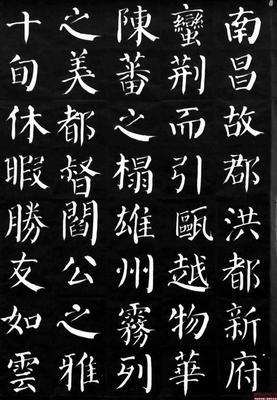 南昌故郡洪都新府
蠻荆而引甌越物華
陳蕃之榻雄州霧列
之美都督閻公之雅
十旬休暇勝友如雲